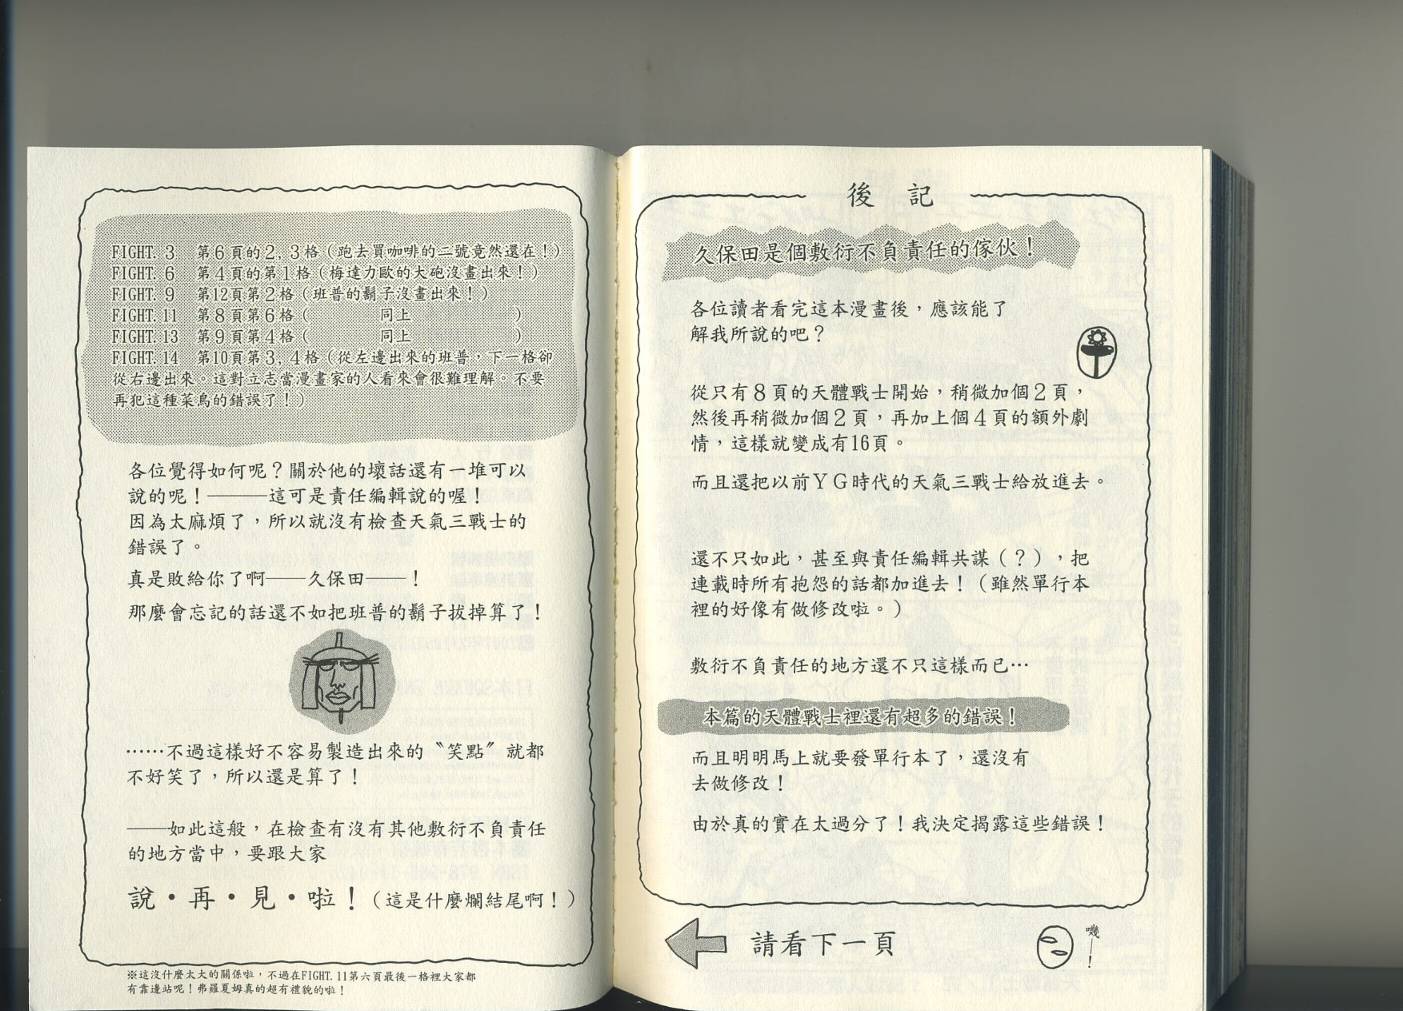 後　記
久保田是個敷衍不負責任的傢伙！
各位讀者看完這本漫畫後，應該能了
解我所說的吧？
從只有８頁的天體戰士開始，稍微加個２頁，
然後再稍微加個２頁，再加上個４頁的額外劇
情，這樣就變成有16頁。
而且還把以前ＹＧ時代的天氣三戰士給放進去。
還不只如此，甚至與責任編輯共謀（？），把
連載時所有抱怨的話都加進去！（雖然單行本
裡的好像有做修改啦。）
敷衍不負責任的地方還不只這樣而已…
本篇的天體戰士裡還有超多的錯誤！
而且明明馬上就要發單行本了，還沒有
去做修改！
由於真的實在太過分了！我決定揭露這些錯誤！
請看下一頁
嘰──！
FIGHT. 3　第６頁的２, ３格（跑去買咖啡的二號竟然還在！）
FIGHT. 6　第４頁的第１格（梅達力歐的大砲沒畫出來！）
FIGHT. 9　第12頁第２格（班普的鬍子沒畫出來！）
FIGHT. 11　第８頁第６格（　　　　同上　　　　　　）
FIGHT. 13　第９頁第４格（　　　　同上　　　　　　）
FIGHT. 14　第10頁第３, ４格（從左邊出來的班普，下一格卻
從右邊出來。這對立志當漫畫家的人看來會很難理解。不要
再犯這種菜鳥的錯誤了！）
各位覺得如何呢？關於他的壞話還有一堆可以
說的呢！———這可是責任編輯說的喔！
因為太麻煩了，所以就沒有檢查天氣三戰士的
錯誤了。
真是敗給你了啊——久保田——！
那麼會忘記的話還不如把班普的鬍子拔掉算了！
……不過這樣好不容易製造出來的〝笑點〞就都
不好笑了，所以還是算了！
——如此這般，在檢查有沒有其他敷衍不負責任
的地方當中，要跟大家
說・再・見・啦！（這是什麼爛結尾啊！）
※這沒什麼太大的關係啦，不過在FIGHT. 11第六頁最後一格裡大家都
有靠邊站呢！弗羅夏姆真的超有禮貌的啦！